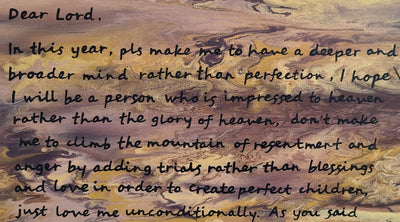 Dear Lord.
In this year, pls make me to have a deeper and
broader mind rather than perfection, I hope
I will be a person who is impressed to heaven
rather than the glory of heaven, don't make
me to climb the mountain of resentment and
anger by adding trials rather than blessings
and love in order to create perfect children,
just love me unconditionally. As you said